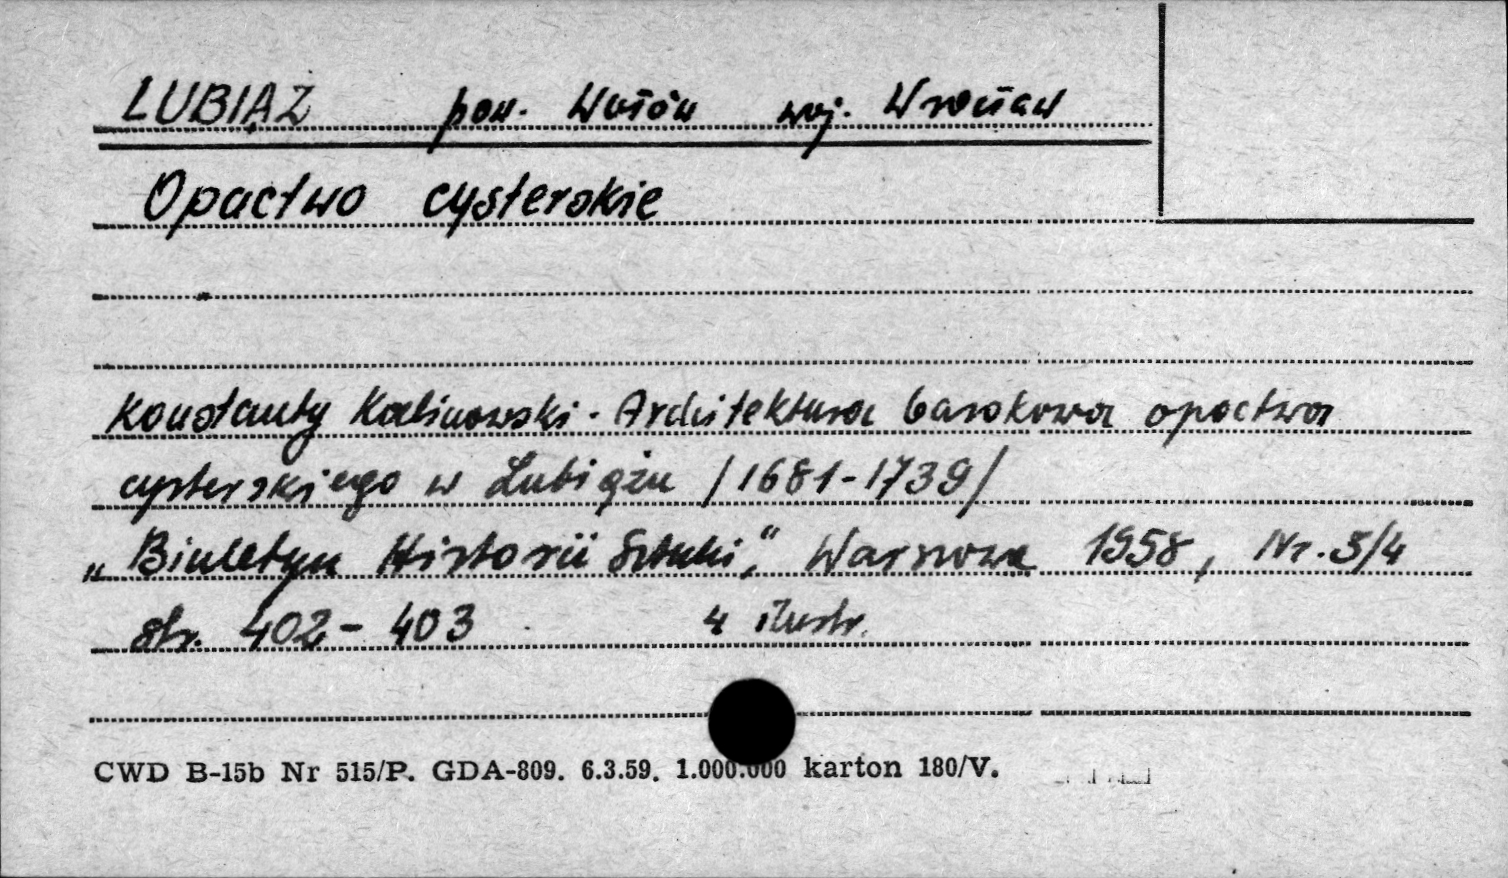 LUBIĄŻ pow. Wołów woj. Wrocław
Opactwo cysterskie
Konstanty Kalinowski - Architektura barokowa opactwa
cysterskiego w Lubiążu /1681-1739/
„Biuletyn Historii Sztuki," Warszawa 1958, Nr. 3/4
str. 402-403 4 ilustr.
CWD B-15b Nr 515/P. GDA-809. 6.3.59. 1.000.000 karton 180/V.